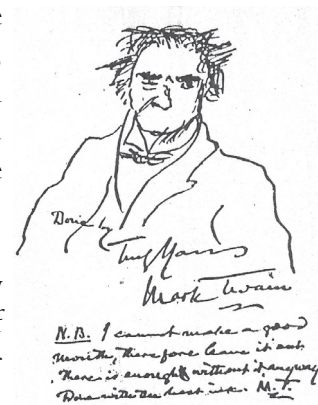 Done by
Truly Yours
Mark Twain
N.B. I cannot make a good
mouth, therefore leave it out.
There is enough without it anyway
Done with the best ink. M.T.